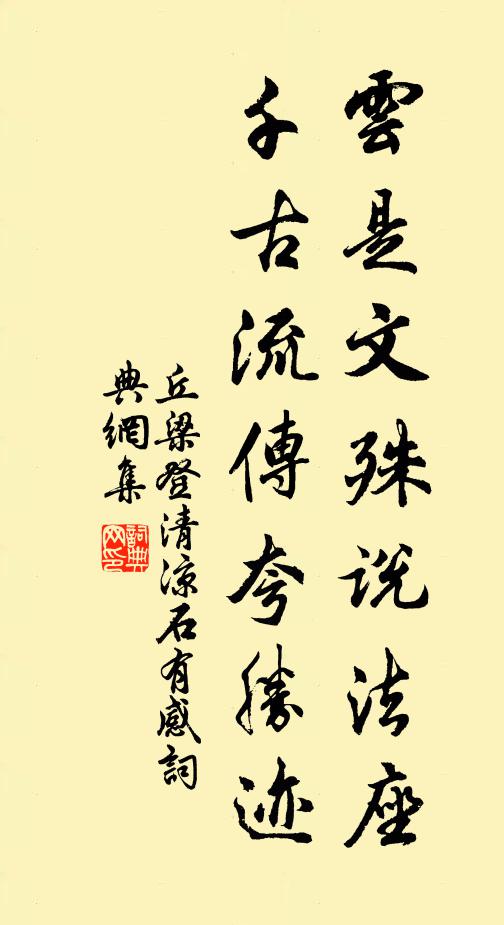 雲是文殊説法座
千古流傳夸勝迹
丘梁登清涼石有感詞
典網集
詞典網印